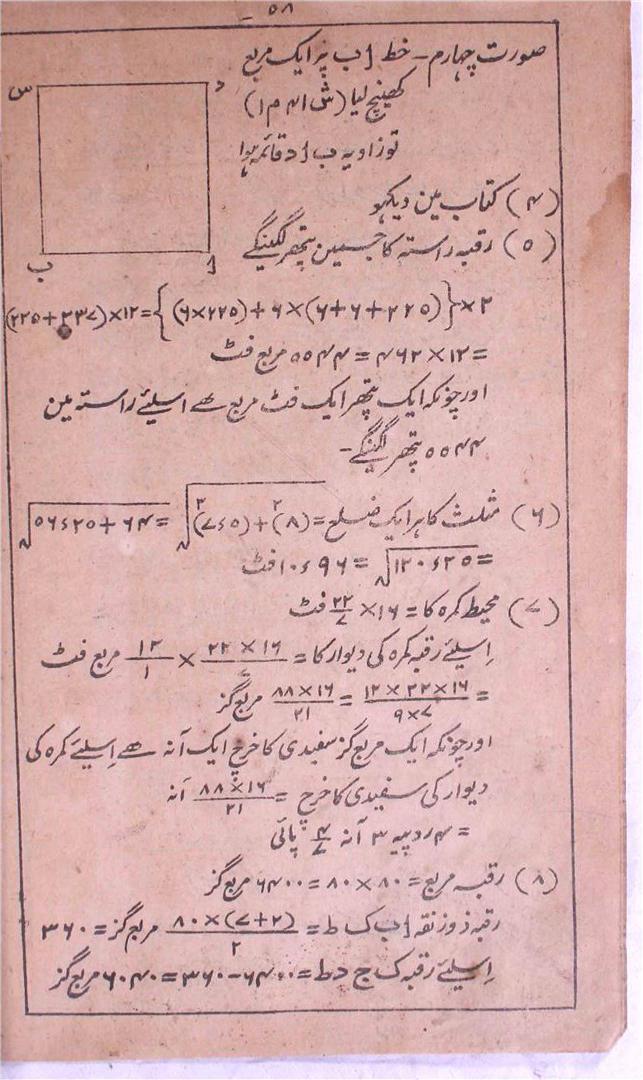 ۵۸
صورت چہارم - خط اب پر ایک مربع
کھینچ لیا (ش ۴۱ م ۱)
تو زاویہ ب ا د قائمہ ہوا
س د
ب ا
(۴) کتاب مین دیکہو
(۵) رقبہ راستہ کا جسمین پتھر لگینگے
۲×{(۲۲۵+۶+۶)×۶+(۲۲۵×۶)}=۱۲×(۲۳۷+۲۲۵)
=۱۲×۴۶۲=۵۵۴۴ مربع فٹ
اور چونکہ ایک پتھر ایک فٹ مربع ھے اسلیٔے راستہ مین
۵۵۴۴ پتھر لگینگے -
(۶) مثلث کا ہر ایک ضلع=√(۸)۲+(۷٫۵)۲=√۶۴+۵۶٫۲۵
=√۱۲۰٫۲۵=۱۰٫۹۶ فٹ
(۷) محیط کمرہ کا=۱۶×۲۲/۷ فٹ
اِسلیٔے رقبہ کمرہ کی دیوار کا=۱۶×۲۲/۷×۱۲/۱ مربع فٹ
=۱۶×۲۲×۱۲/۷×۹=۱۶×۸۸/۲۱ مربع گز
اور چونکہ ایک مربع گز سفیدی کا خرچ ایک آنہ ھے اِسلیٔے کمرہ کی
دیوار کی سفیدی کا خرچ=۱۶×۸۸/۲۱ آنہ
=۴ روپیہ ۳ آنہ ۴/۷ پائی
(۸) رقبہ مربع=۸۰×۸۰=۶۴۰۰ مربع گز
رقبہ ذوزنقہ اب ک ط=۸۰×(۷+۲)/۲ مربع گز=۳۶۰
اِسلیٔے رقبہ ک ج د ط=۶۴۰۰-۳۶۰=۶۰۴۰ مربع گز